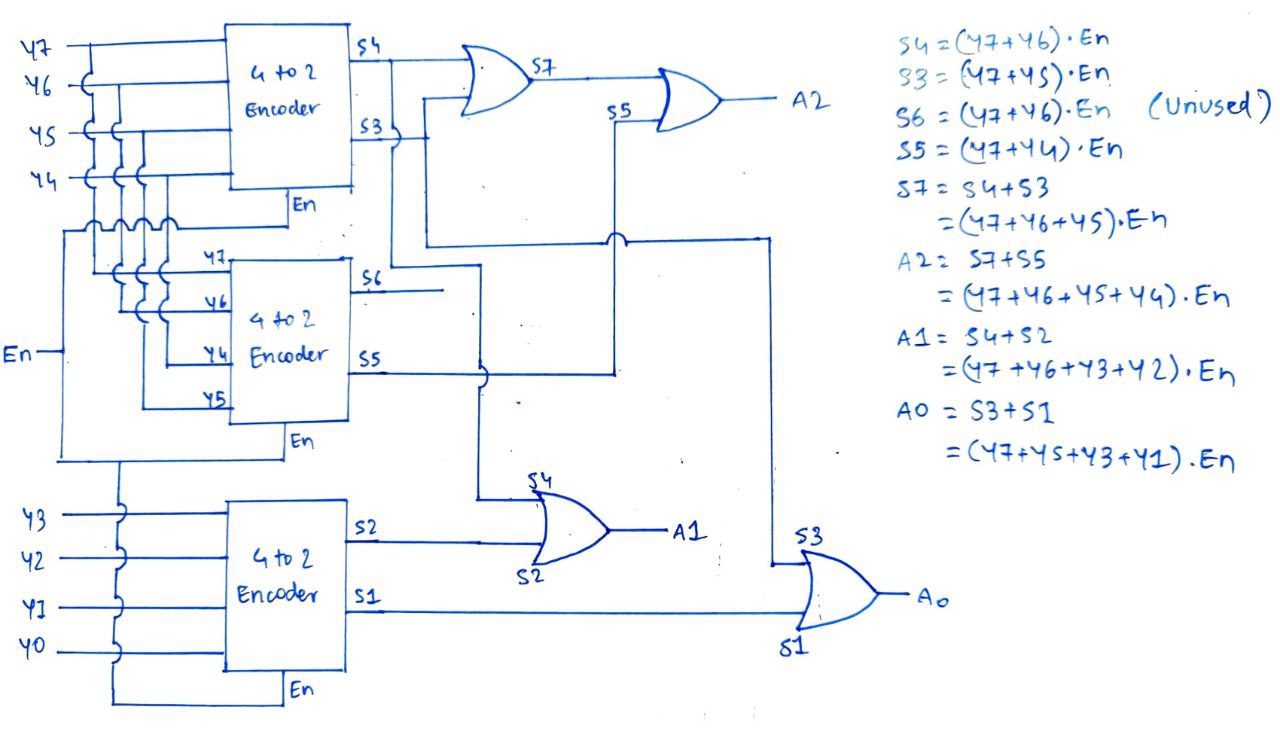 Y7
Y6
Y5
Y4
4 to 2
Encoder
S4
S3
En
S7
S5
A2
En
Y7
Y6
Y4
Y5
4 to 2
Encoder
S6
S5
En
Y3
Y2
Y1
Y0
4 to 2
Encoder
S2
S1
En
S4
S2
A1
S3
S1
A0
S4 = (Y7+Y6)·En
S3 = (Y7+Y5)·En
S6 = (Y7+Y6)·En (Unused)
S5 = (Y7+Y4)·En
S7 = S4+S3
= (Y7+Y6+Y5)·En
A2 = S7+S5
= (Y7+Y6+Y5+Y4)·En
A1 = S4+S2
= (Y7+Y6+Y3+Y2)·En
A0 = S3+S1
= (Y7+Y5+Y3+Y1)·En